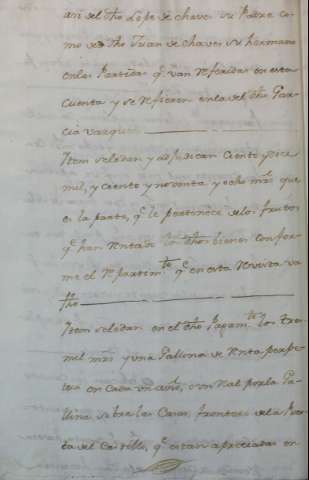 asi del dho Lope de chaves su Padre co-
mo de dho Juan de chaves su hermano
en las Partidas q.e van referidas en esta
cuenta y se refieren en la del dho Gar-
cia vazquez
Item se le dan y adjudican Ciento y doce
mil, y ciento y noventa y ocho mrs que
es la parte, q.e le pertenece de los frutos
q.e han rentado los dhos bienes confor-
me el repartim.to q.e en esta Revista va
fho
Item se le dan en el dho Pagam.to los tres
mil mrs y una Gallina de renta perpe-
tua en cada un año, con Real por la Ga-
llina sobre las Casas fronteras de la Puer-
ta del Castillo, q.e estan apreciadas en